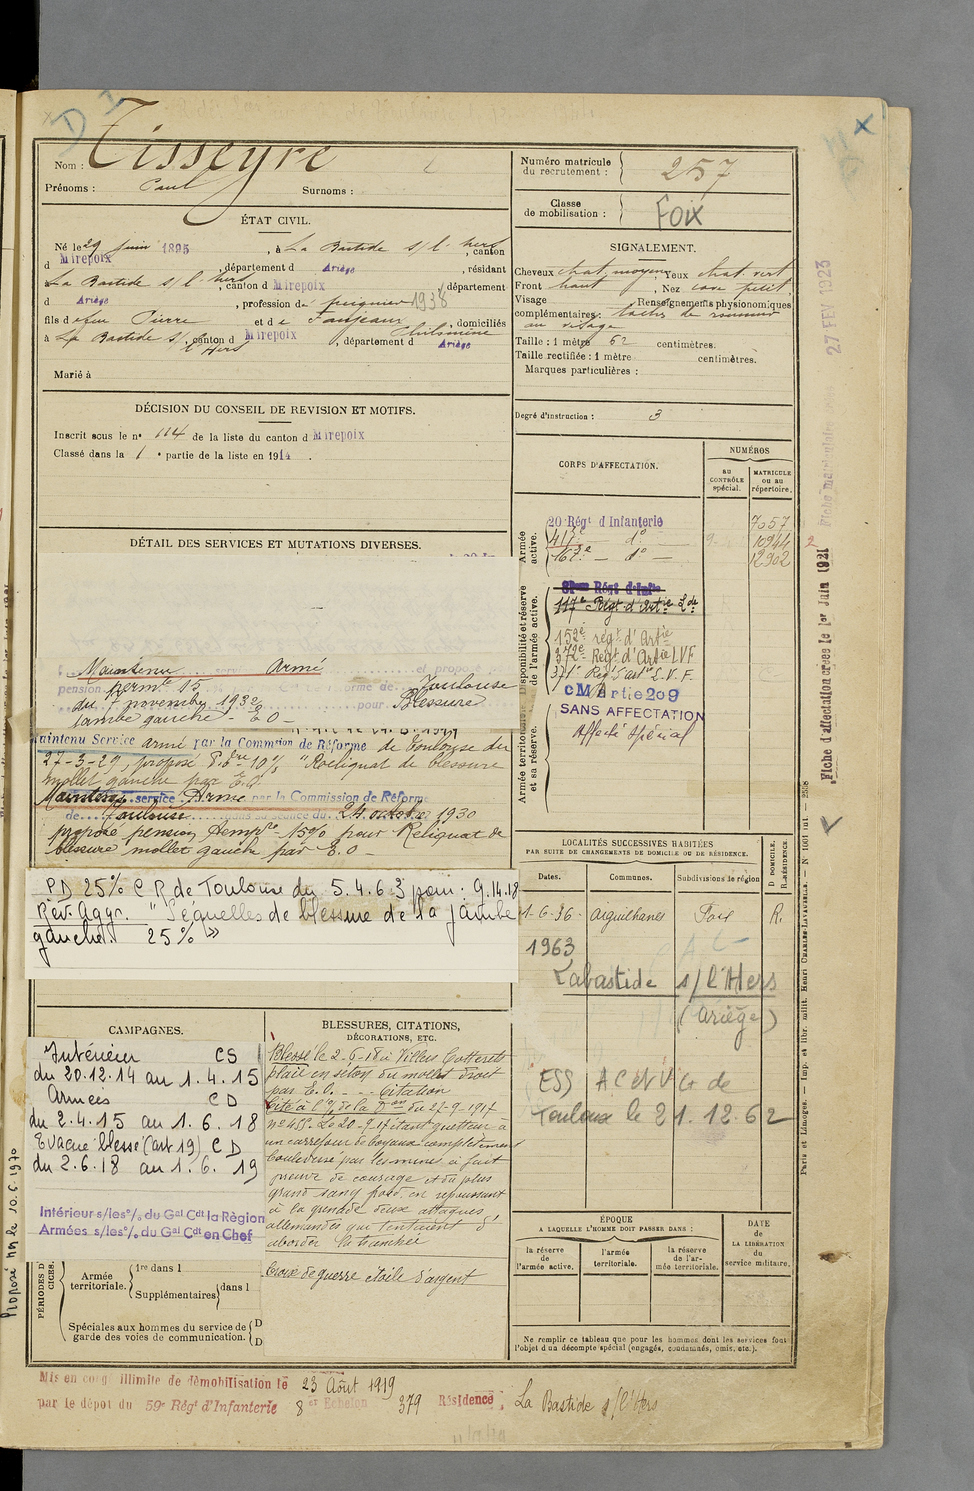 Nom : Tisseyre
Prénoms : Paul Surnoms :
ÉTAT CIVIL.
Né le 29 juin 1895, à La Bastide s/l'hers, canton
d Mirepoix, département d Ariège, résidant
La Bastide s/l'hers, canton d Mirepoix département
d Ariège, profession de peignier 1938
fils de feu Pierre et de Faujeaux Philomène, domiciliés
à La Bastide s/l'Hers, canton d Mirepoix, département d Ariège
Marié à
DÉCISION DU CONSEIL DE REVISION ET MOTIFS.
Inscrit sous le n° 114 de la liste du canton d Mirepoix
Classé dans la 1e partie de la liste en 1914.
DÉTAIL DES SERVICES ET MUTATIONS DIVERSES.
Maintenu service Armé et proposé
pension permte 15 Réforme de Toulouse
du 7 novembre 1932 pour Blessure
jambe gauche - E O -
Maintenu Service armé par la Commion de Réforme de Toulouse du
27-3-29, proposé P. dre 10% "Reliquat de blessure
mollet gauche par E.O.
Maintenu service Armé par la Commission de Réforme
de Toulouse dans sa séance du 24 octobre 1930
propose pension temp. 15% pour Reliquat de
blessure mollet gauche par E.O -
P D 25% C R de Toulouse du 5.4.63 pour : G.14.18
Rév. Aggr. "Séquelles de blessure de la jambe
gauche. 25% »
CAMPAGNES.
Intérieur CS
du 20.12.14 au 1.4.15
Armées C D
du 2.4.15 au 1.6.18
Evacué blessé (art 19) C D
du 2.6.18 au 1.6.19
Intérieur s/les °/. du Gal Cdt la Région
Armées s/les °/. du Gal Cdt en Chef
PÉRIODES D
CICES.
Armée
territoriale.
1re dans l
Supplémentaires dans l
Spéciales aux hommes du service de
garde des voies de communication.
D
D
BLESSURES, CITATIONS,
DÉCORATIONS, ETC.
Blessé le 2-6-18 à Villers Cotterets
plaie en séton du mollet droit
par E.O. - - - Citation
Cité à l'O/ de la Don du 27-9-1917
n° 455. Le 20-9-17 étant guetteur à
un carrefour de boyaux complètement
bouleversé par les mines a fait
preuve de courage et du plus
grand sang froid en repoussant
à la grenade deux attaques
allemandes qui tentaient d'
aborder la tranchée
Croix de guerre étoile d'argent
Numéro matricule
du recrutement : 257
Classe
de mobilisation : FOIX
SIGNALEMENT.
Cheveux chat. moyen yeux chat. vert
Front haut, Nez cave petit
Visage Renseignements physionomiques
complémentaires : taches de rousseur
au visage
Taille : 1 mètre 62 centimètres.
Taille rectifiée : 1 mètre centimètres.
Marques particulières :
Degré d'instruction : 3
CORPS D'AFFECTATION.
NUMÉROS
AU
CONTRÔLE
spécial.
MATRICULE
OU AU
répertoire.
Armée
active.
20 Régt d'Infanterie 7057
417e - d° - 10944
167e - d° - 12902
Disponibilité et réserve
de l'armée active.
Régt d'Infie
117e Régt d'Artie Lde
152e régt d'Artie
372e Régt d'Artie LVF
371e Régt d'art L.V.F.
Armée territoriale
et sa réserve.
CM Artie 209
SANS AFFECTATION
Affecté Spécial
LOCALITÉS SUCCESSIVES HABITÉES
PAR SUITE DE CHANGEMENTS DE DOMICILE OU DE RÉSIDENCE.
Dates. Communes. Subdivisions de région
D. DOMICILE.
R. RÉSIDENCE.
1-6-36 aiguilhanes Foix R.
1963
Labastide s/l'Hers
(Ariège)
ESS AC et VG de
Toulouse le 21.12.62
ÉPOQUE
A LAQUELLE L'HOMME DOIT PASSER DANS :
la réserve
de
l'armée active.
l'armée
territoriale.
la réserve
de l'ar-
mée territoriale.
DATE
de
LA LIBÉRATION
du
service militaire.
Ne remplir ce tableau que pour les hommes dont les services font
l'objet d'un décompte spécial (engagés, condamnés, omis, etc.).
Mis en congé illimité de démobilisation le 23 Août 1919
par le dépôt du 59e Régt d'Infanterie 8e Echelon 379 Résidence : La Bastide s/l'Hers
Proposé non le 10.6.1970
27 FEV 1923
Fiche matriculaire
Fiche d'affectation créée le 1er Juin 1921
Paris et Limoges. — Imp. et libr. milit. Henri CHARLES-LAVAUZELLE. — N° 1001 int. — 2538